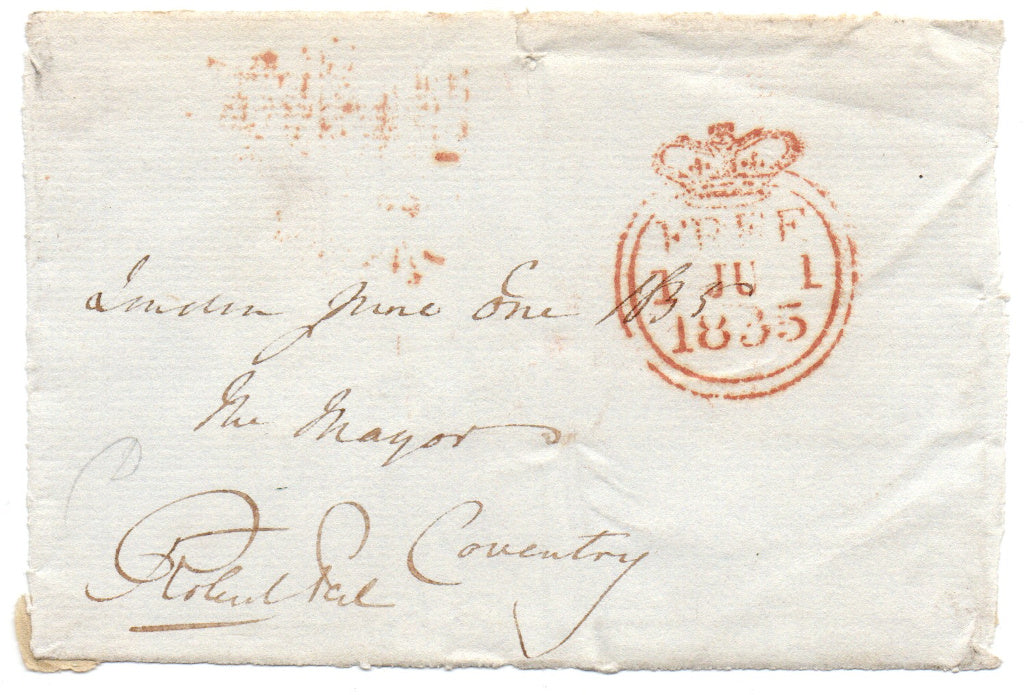 FREE
1 JU 1
1835
London June One 1835
The Mayor
Coventry
Robert Peel